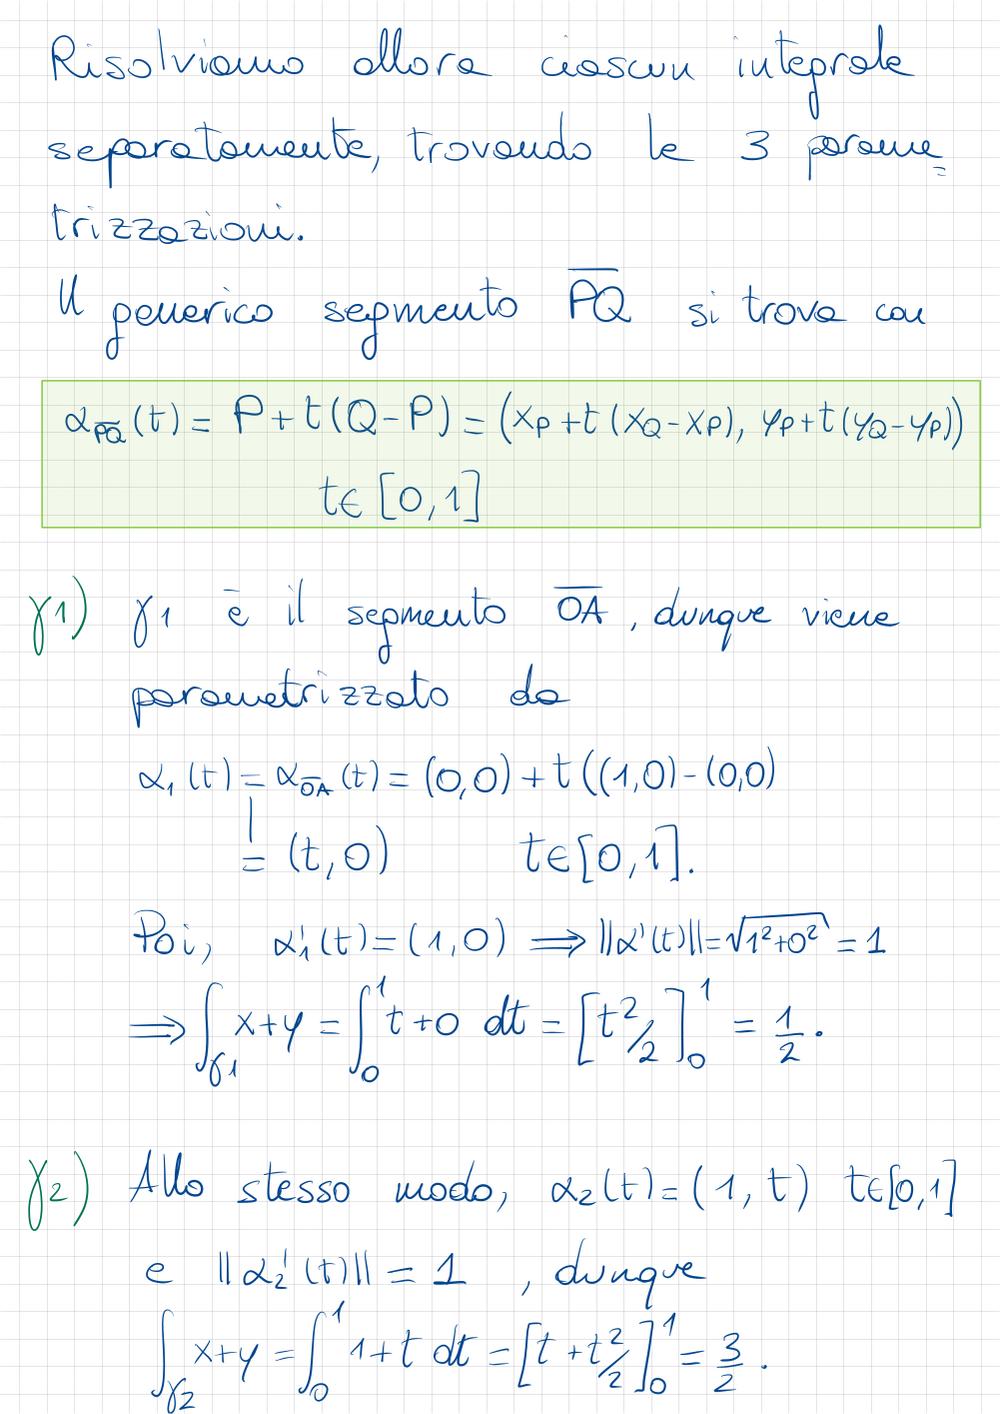 Risolviamo allora ciascun integrale
separatamente, trovando le 3 parame=
trizzazioni.
Il generico segmento \overline{PQ} si trova con
α_{\overline{PQ}}(t) = P+t(Q-P) = (x_P+t(x_Q-x_P), y_P+t(y_Q-y_P))
t∈[0,1]
γ1) γ1 è il segmento \overline{OA}, dunque viene
parametrizzato da
α₁(t) = α_{\overline{OA}}(t) = (0,0)+t((1,0)-(0,0)
= (t,0) t∈[0,1].
Poi, α₁'(t)=(1,0) ⟹ ||α'(t)||=√(1²+0²) = 1
⟹ ∫_{γ1} x+y = ∫₀¹ t+0 dt = [t²/2]₀¹ = 1/2.
γ2) Allo stesso modo, α₂(t)=(1,t) t∈[0,1]
e ||α₂'(t)|| = 1, dunque
∫_{γ2} x+y = ∫₀¹ 1+t dt = [t+t²/2]₀¹ = 3/2.